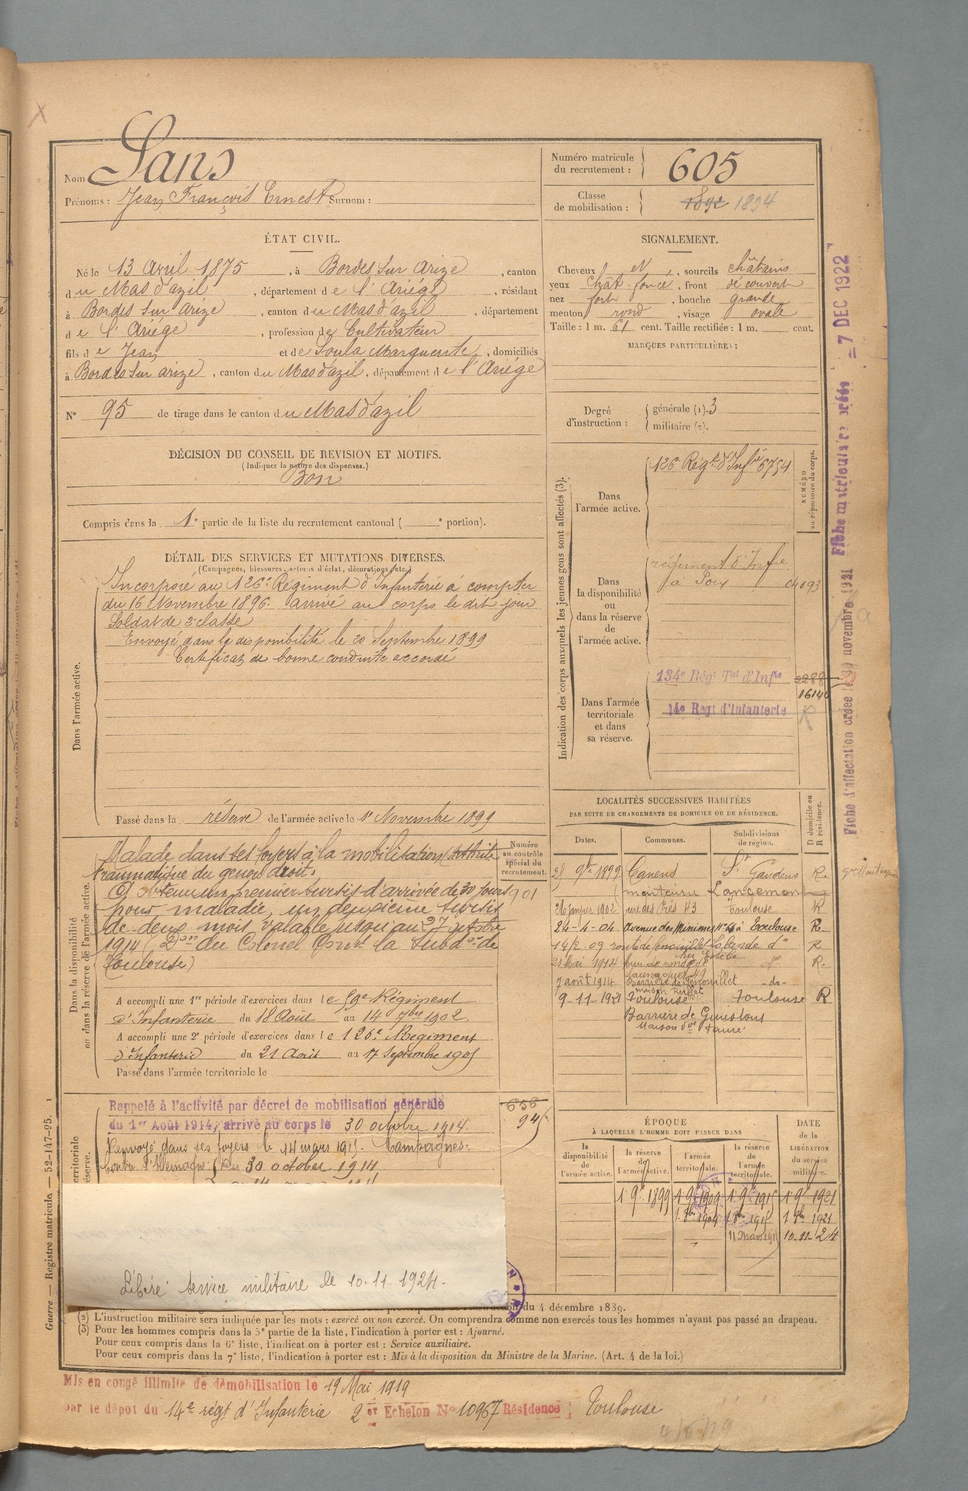 Nom Sans
Prénoms : Jean François Ernest Surnom :
Numéro matricule du recrutement : 605
Classe de mobilisation : 1894
ÉTAT CIVIL.
Né le 13 Avril 1875, à Bordes sur Arize, canton
du Mas d'azil, département de l'Ariège, résidant
à Bordes sur Arize, canton du Mas d'azil, département
de l'Ariège, profession de Cultivateur
fils de Jean et de Soula Marguerite, domiciliés
à Bordes sur arize, canton du Mas d'azil, département de l'Ariège
N° 95 de tirage dans le canton du Mas d'azil
SIGNALEMENT.
Cheveux et, sourcils châtains
yeux chât. foncé, front découvert
nez fort, bouche grande
menton rond, visage ovale
Taille : 1 m. 61 cent. Taille rectifiée : 1 m. cent.
MARQUES PARTICULIÈRES :
Degré d'instruction : générale (1). 3
militaire (2).
DÉCISION DU CONSEIL DE REVISION ET MOTIFS.
(Indiquer la nature des dispenses.)
Bon
Compris dans la 1e partie de la liste du recrutement cantonal ( e portion).
DÉTAIL DES SERVICES ET MUTATIONS DIVERSES.
(Campagnes, blessures, actions d'éclat, décorations, etc.)
Dans l'armée active.
Incorporé au 126e Régiment d'Infanterie à compter
du 16 Novembre 1896. arrivé au corps le dit jour
Soldat de 2e classe
Envoyé dans la disponibilité le 20 Septembre 1899
Certificat de bonne conduite accordé
Passé dans la réserve de l'armée active le 1er Novembre 1899
Indication des corps auxquels les jeunes gens sont affectés (3).
NUMÉRO au répertoire du corps.
Dans l'armée active.
126e Régt d'Infie 5754
Dans la disponibilité ou dans la réserve de l'armée active.
régiment d'Infie
à Foix 04093
Dans l'armée territoriale et dans sa réserve.
134e Régt Tal d'Infie
16146
14e Regt d'Infanterie R
Dans la disponibilité ou dans la réserve de l'armée active.
Malade dans ses foyers à la mobilisation (Arthrite
traumatique du genou droit.
A obtenu un premier sursis d'arrivée de 30 jours
pour maladie, un deuxième sursis
de deux mois, valable jusqu'au 27 octobre
1914 (Don du Colonel Comt la Subdon de
Toulouse)
Numéro au contrôle spécial du recrutement.
901
A accompli une 1re période d'exercices dans le 59e Régiment
d'Infanterie du 18 Août au 14 7bre 1902.
A accompli une 2e période d'exercices dans le 126e Régiment
d'Infanterie du 21 Août au 17 Septembre 1905
Passé dans l'armée territoriale le
LOCALITÉS SUCCESSIVES HABITÉES
PAR SUITE DE CHANGEMENTS DE DOMICILE OU DE RÉSIDENCE.
Dates. Communes. Subdivisions de région. D domicile ou R résidence.
28 9bre 1899 St Gaudens R
26 janvier 1902 rue des Prés 43 Toulouse R
24-4-04 Avenue des Minimes N° Toulouse R
14/2 09 Lalande do R
21 mai 1914 do R
7 août 1914 do
9-11-1921 Toulouse Toulouse R
Barrière de
Maison
territoriale
réserve.
Rappelé à l'activité par décret de mobilisation générale
du 1er Août 1914, arrivé au corps le 30 octobre 1914.
Renvoyé dans ses foyers le 14 mars 1915. Campagnes:
contre l'Allemagne: Du 30 octobre 1914
656
945
ÉPOQUE
À LAQUELLE L'HOMME DOIT PASSER DANS
la disponibilité de l'armée active. la réserve de l'armée active. l'armée territoriale. la réserve de l'armée territoriale.
DATE de la LIBÉRATION du service militaire.
1 9bre 1899 1 9bre 1909 1 9bre 1915 1 9bre 1921
1 8bre 1909 1 8bre 1915 1 8bre 1921
10.11.24
Libéré service militaire le 10.11.1924.
du 4 décembre 1889.
(2) L'instruction militaire sera indiquée par les mots : exercé ou non exercé. On comprendra comme non exercés tous les hommes n'ayant pas passé au drapeau.
(3) Pour les hommes compris dans la 5e partie de la liste, l'indication à porter est : Ajourné.
Pour ceux compris dans la 6e liste, l'indication à porter est : Service auxiliaire.
Pour ceux compris dans la 7e liste, l'indication à porter est : Mis à la disposition du Ministre de la Marine. (Art. 4 de la loi.)
Mis en congé illimité de démobilisation le 19 Mai 1919
par le dépôt du 14e régt d'Infanterie 2 er Echelon N° 10967 Résidence : Toulouse
Guerre — Registre matricule. — 52-147-95.
Fiche d'affectation créée le 30 novembre 1921 Fiche matriculaire créée = 7 DEC 1922